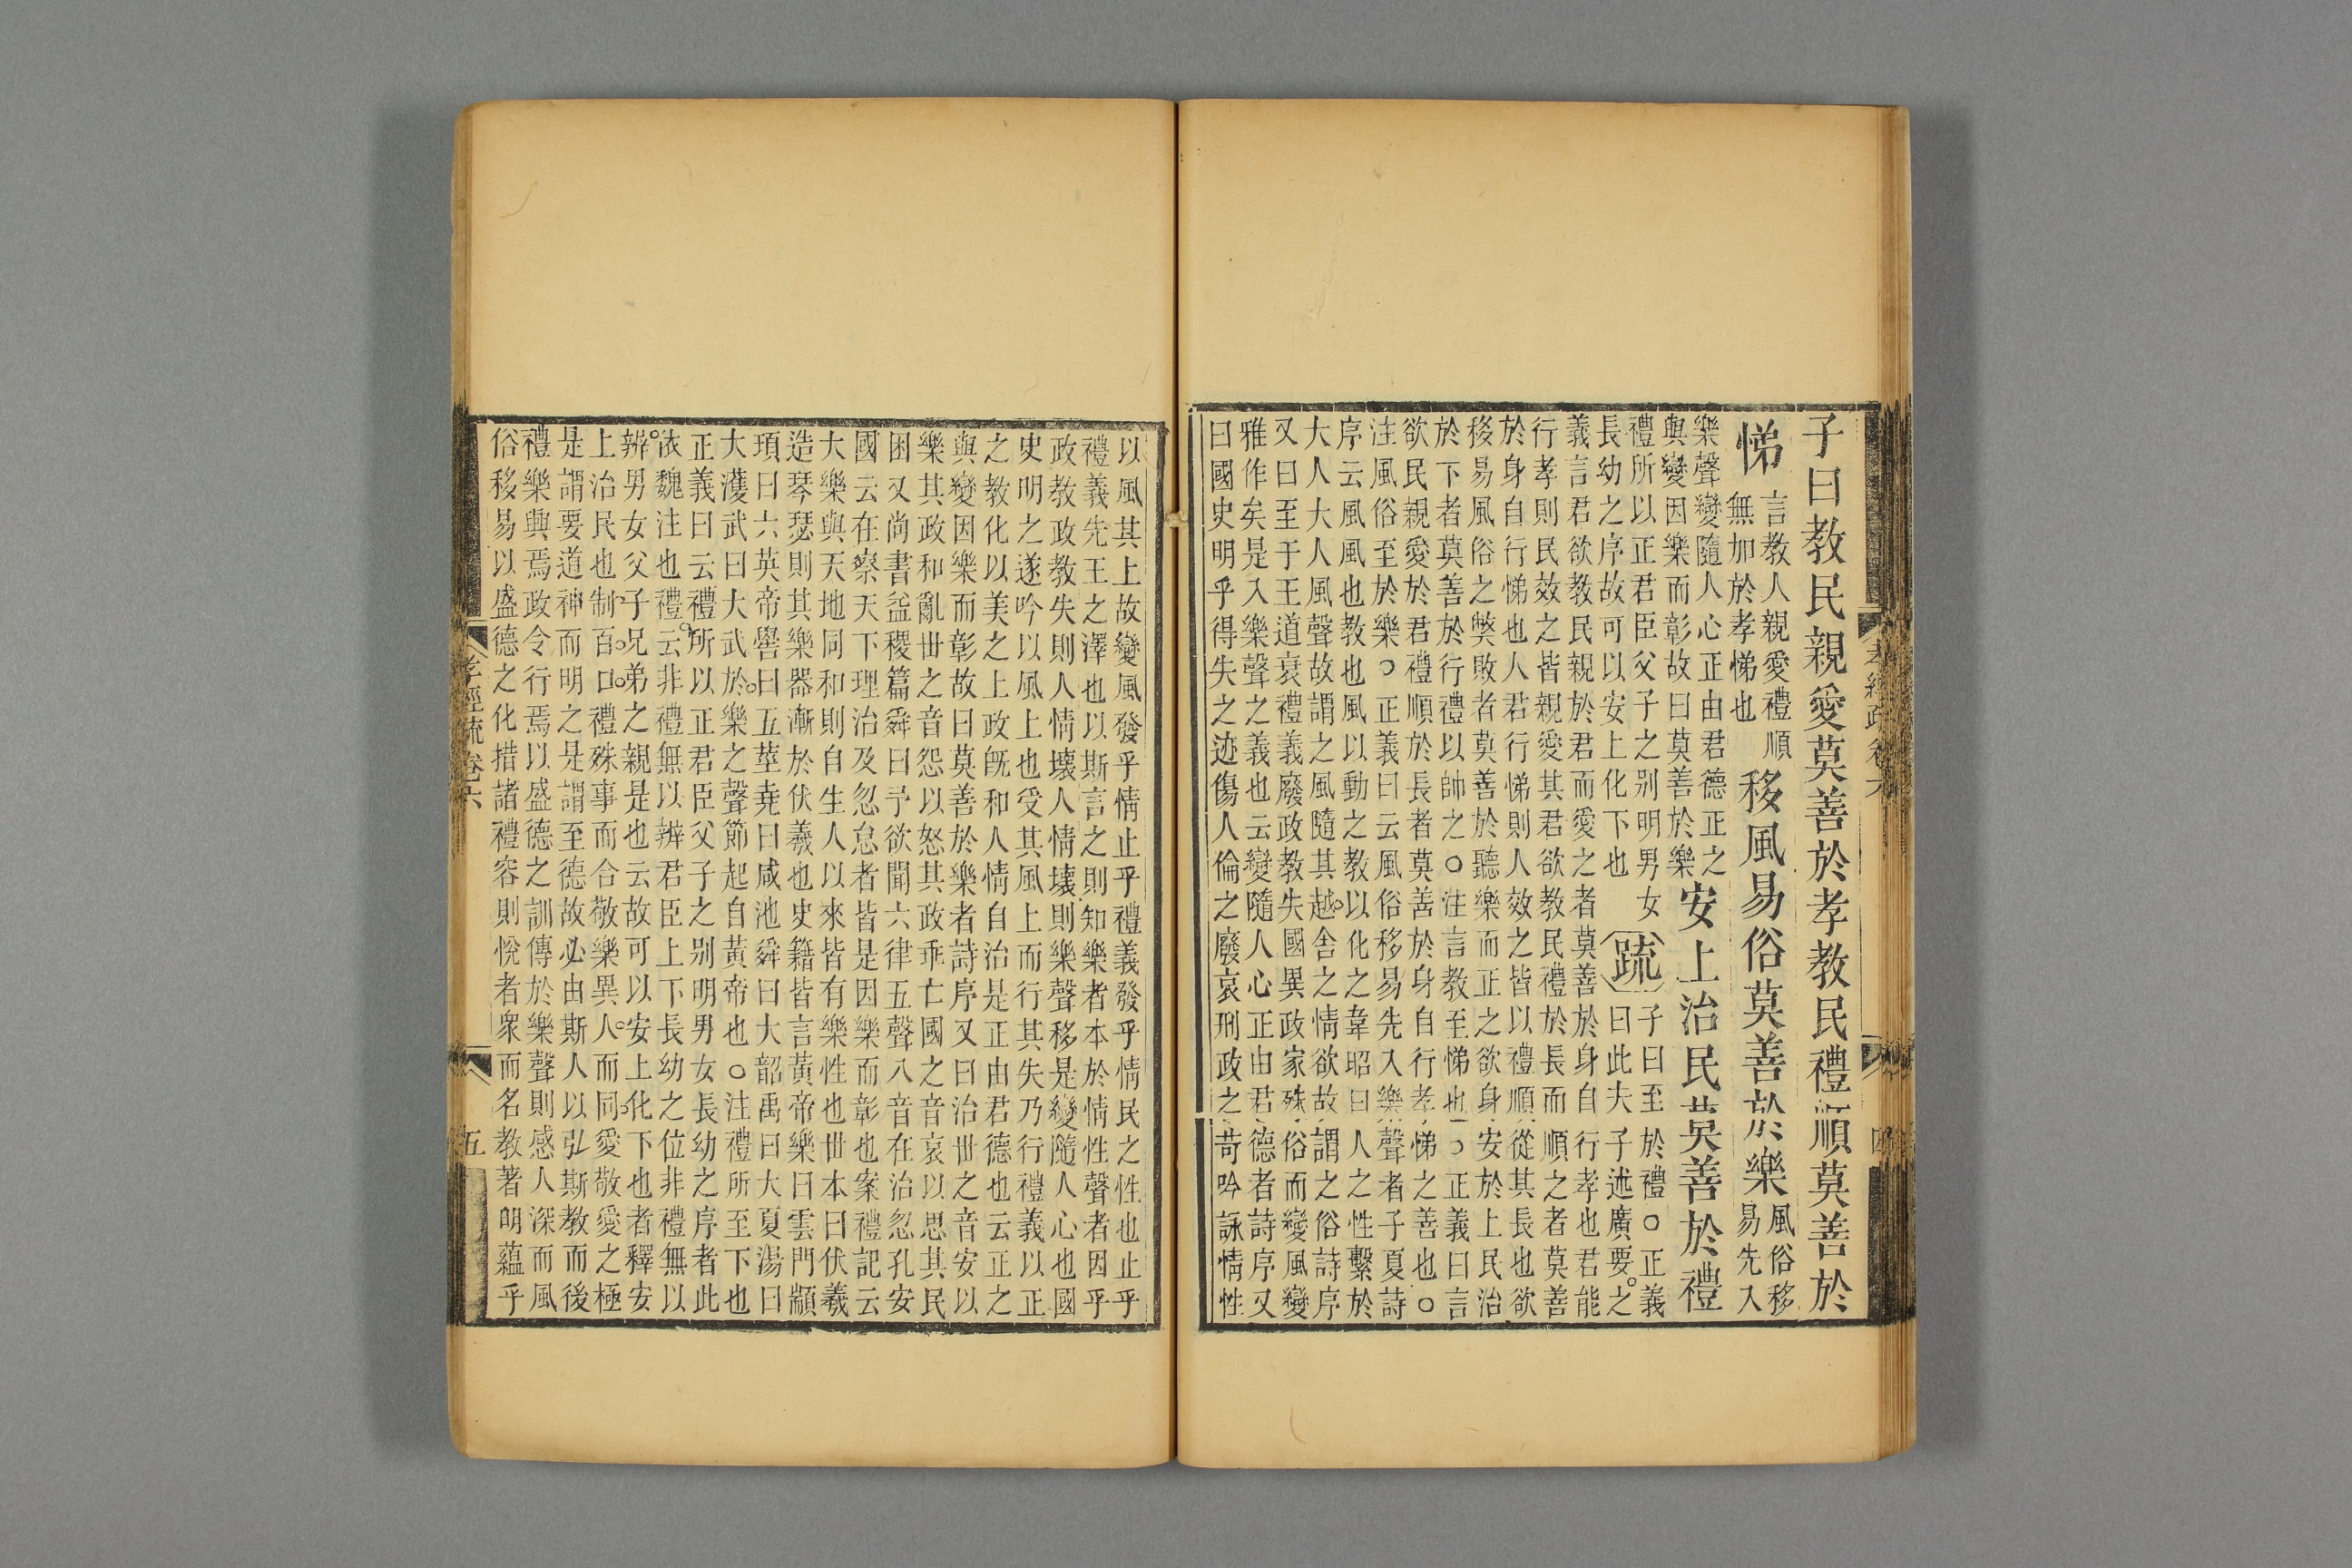 子曰教民親愛莫善於孝教民禮順莫善於
悌
言教人親愛禮順
無加於孝悌也
移風易俗莫善於樂
風俗移
易先入
樂聲變隨人心正由君德正之
與變因樂而彰故曰莫善於樂
安上治民莫善於禮
禮所以正君臣父子之别明男女
長幼之序故可以安上化下也
疏
子曰至於禮○正義
曰此夫子述廣要之
義言君欲教民親於君而愛之者莫善於身自行孝也君能
行孝則民效之皆親愛其君欲教民禮於長而順之者莫善
於身自行悌也人君行悌則人效之皆以禮順從其長也欲
移易風俗之弊敗者莫善於聽樂而正之欲身安於上民治
於下者莫善於行禮以帥之○注言教至悌也○正義曰言
欲民親愛於君禮順於長者莫善於身自行孝悌之善也○
注風俗至於樂○正義曰云風俗移易先入樂聲者子夏詩
序云風風也教也風以動之教以化之韋昭曰人之性繫於
大人大人風聲故謂之風隨其越舍之情欲故謂之俗詩序
又曰至于王道衰禮義廢政教失國異政家殊俗而變風變
雅作矣是入樂聲之義也云變隨人心正由君德者詩序又
曰國史明乎得失之迹傷人倫之廢哀刑政之苛吟詠情性
以風其上故變風發乎情止乎禮義發乎情民之性也止乎
禮義先王之澤也以斯言之則知樂者本於情性聲者因乎
政教政教失則人情壞人情壞則樂聲移是變隨人心也國
史明之遂吟以風上也受其風上而行其失乃行禮義以正
之教化以美之上政既和人情自治是正由君德也云正之
與變因樂而彰故曰莫善於樂者詩序又曰治世之音安以
樂其政和亂世之音怨以怒其政乖亡國之音哀以思其民
困又尚書益稷篇舜曰予欲聞六律五聲八音在治忽孔安
國云在察天下理治及忽怠者皆是因樂而彰也案禮記云
大樂與天地同和則自生人以來皆有樂性也世本曰伏羲
造琴瑟則其樂器漸於伏羲也史籍皆言黃帝樂曰雲門顓
頊曰六英帝嚳曰五莖堯曰咸池舜曰大韶禹曰大夏湯曰
大濩武曰大武於樂之聲節起自黃帝也○注禮所至下也
正義曰云禮所以正君臣父子之别明男女長幼之序者此
依魏注也禮云非禮無以辨君臣上下長幼之位非禮無以
辨男女父子兄弟之親是也云故可以安上化下也者釋安
上治民也制百口禮殊事而合敬樂異人而同愛敬愛之極
是謂要道神而明之是謂至德故必由斯人以弘斯教而後
禮樂興焉政令行焉以盛德之訓傳於樂聲則感人深而風
俗移易以盛德之化措諸禮容則悅者衆而名教著明蘊乎
孝經疏卷六
五